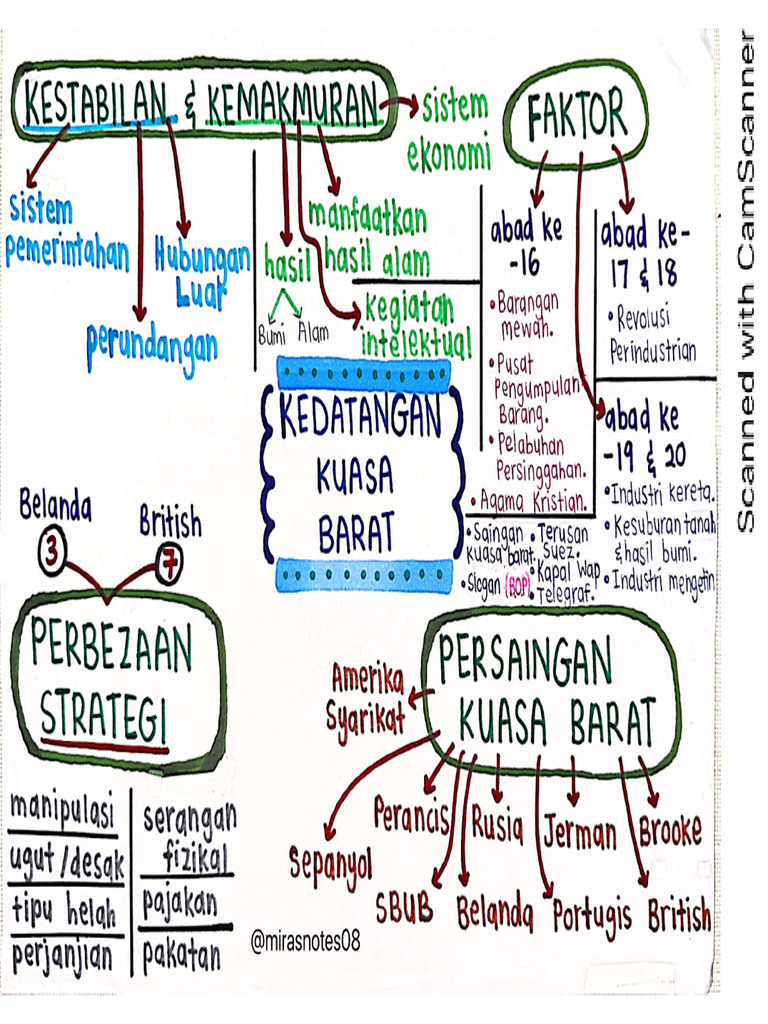 KESTABILAN & KEMAKMURAN
sistem
ekonomi
sistem
pemerintahan
Hubungan
Luar
perundangan
manfaatkan
hasil alam
hasil
Bumi Alam
kegiatan
intelektual
FAKTOR
abad ke
-16
• Barangan
mewah.
• Pusat
Pengumpulan
Barang.
• Pelabuhan
Persinggahan.
• Agama Kristian.
abad ke-
17 & 18
• Revolusi
Perindustrian
abad ke
-19 & 20
• Industri kereta.
• Kesuburan tanah
& hasil bumi.
• Industri mengetin
• Saingan
kuasa barat.
• Slogan (BOP)
• Terusan
Suez.
• Kapal Wap
• Telegraf.
KEDATANGAN
KUASA
BARAT
Belanda
3
British
7
PERBEZAAN
STRATEGI
manipulasi
ugut/desak
tipu helah
perjanjian
serangan
fizikal
pajakan
pakatan
PERSAINGAN
KUASA BARAT
Amerika
Syarikat
Sepanyol
Perancis
Rusia
Jerman
Brooke
SBUB
Belanda
Portugis
British
@mirasnotes08
Scanned with CamScanner